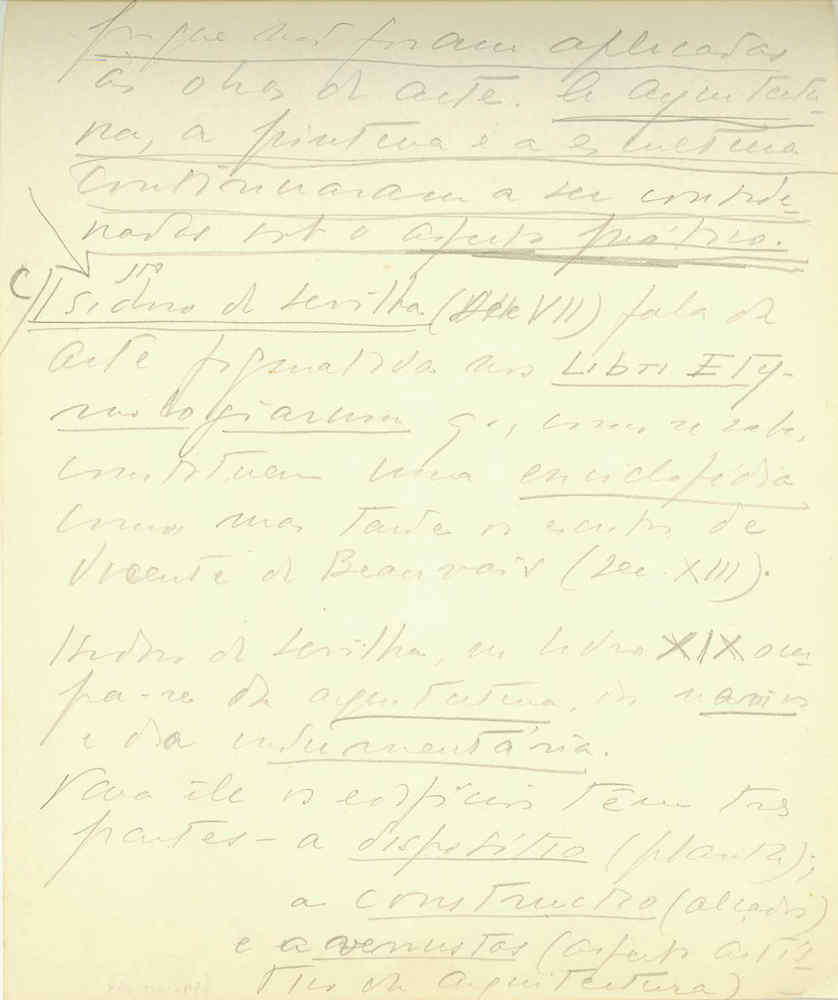 porque não foram aplicadas
às obras de arte. A arquitectu-
ra, a pintura e a escultura
continuaram a ser conside-
radas sob o aspecto prático.
c) Isidoro de Sevilha (Séc VII) fala da
arte figurativa nos LIBRI ETY-
mologiarum que, como se sabe,
constituem uma enciclopédia
como mais tarde os escritos de
Vicente de Beauvais (Sec. XIII).
Isidoro de Sevilha, no livro XIX ocu-
pa-se da arquitectura, dos navios
e da indumentária.
Para ele os edifícios têm três
partes - a dispositio (planta);
a constructio (alçado)
e a venustas (aspecto artís-
tico da arquitectura)